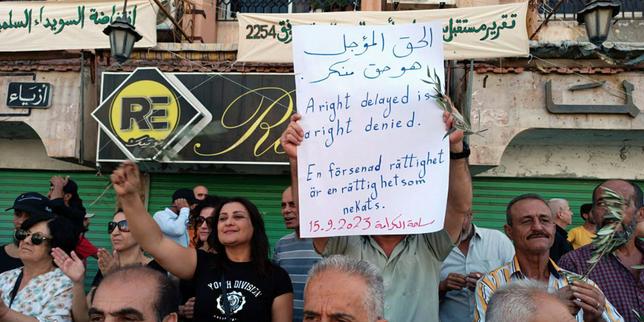 انتفاضة السويداء
تقرير
2254
أزياء
RE
الحق المؤجل
هو حق منكر.
A right delayed is
a right denied.
En försenad rättighet
är en rättighet som
nekats.
15.9.2023 ساحة الكرامة
YOUTH DIVISION